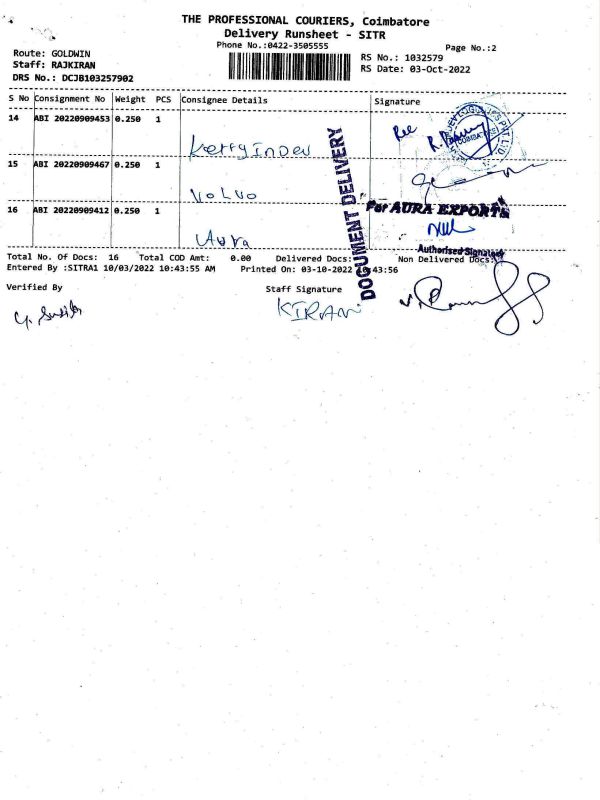 THE PROFESSIONAL COURIERS, Coimbatore
Delivery Runsheet - SITR
Phone No.:0422-3505555
Page No.:2
Route: GOLDWIN
Staff: RAJKIRAN
DRS No.: DCJB103257902
RS No.: 1032579
RS Date: 03-Oct-2022
S No Consignment No Weight PCS Consignee Details Signature
14 ABI 20220909453 0.250 1
Kerry Indev
15 ABI 20220909467 0.250 1
Volvo
16 ABI 20220909412 0.250 1
Aura
For AURA EXPORTS
Authorised Signatory
DOCUMENT DELIVERY
Total No. Of Docs: 16 Total COD Amt: 0.00 Delivered Docs: Non Delivered Docs:
Entered By :SITRA1 10/03/2022 10:43:55 AM Printed On: 03-10-2022 10:43:56
Verified By Staff Signature
KIRAN